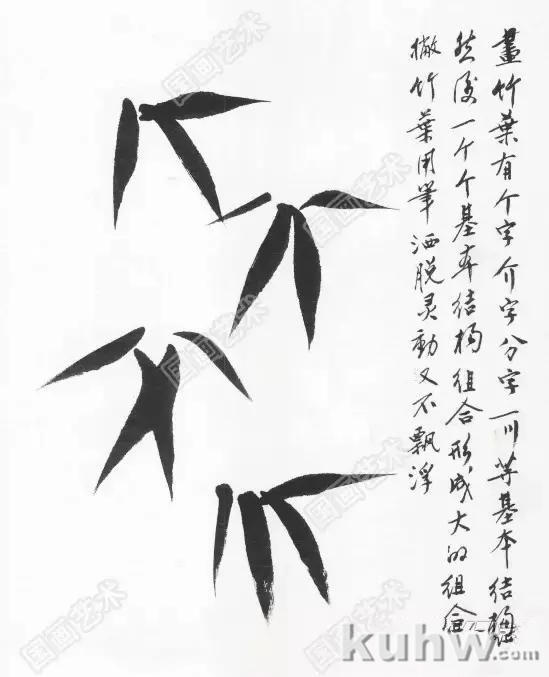 畫竹葉有个字介字分字一川等基本结構
然後一个个基本结構组合形成大的组合
撇竹葉用筆洒脱灵動又不飘浮
国画艺术
国画艺术
国画艺术
国画艺术
国画艺术
国画艺术
国画艺术
kuhw.com